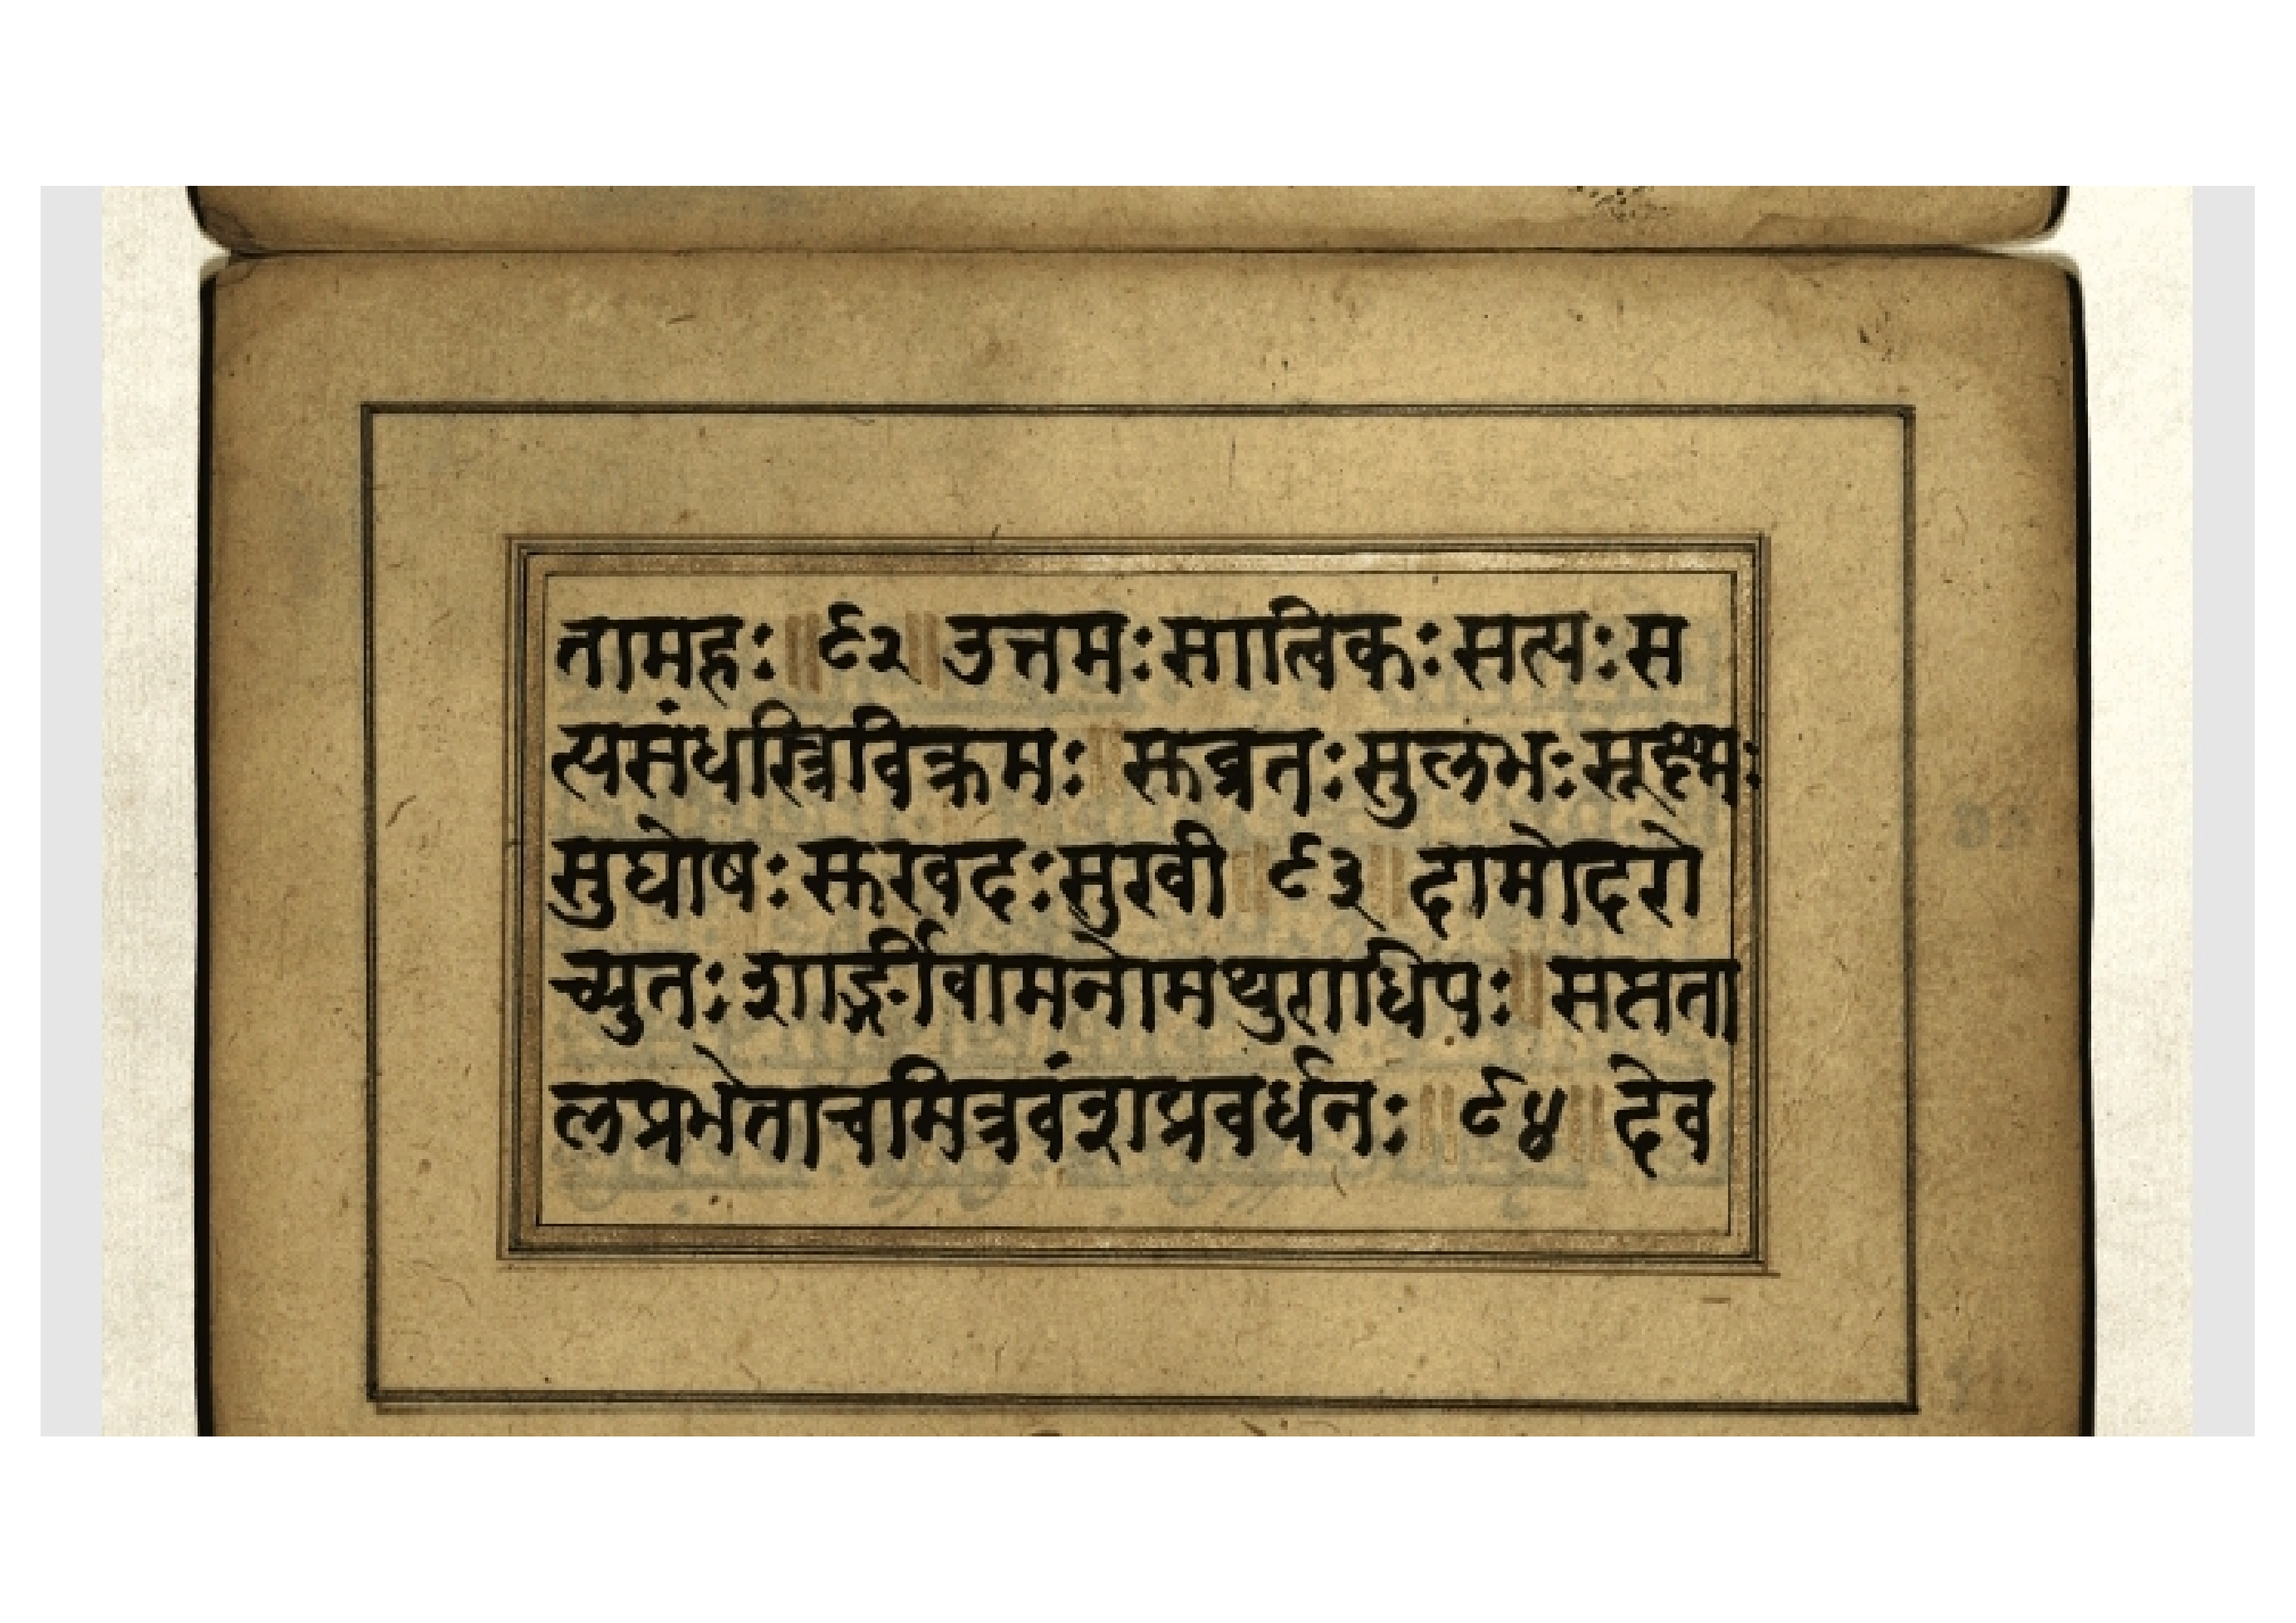 तामहः ॥ ९२ ॥ उत्तमः सात्विकः सत्यः स
त्यसंधस्त्रिविक्रमः ॥ सुव्रतः सुलभः सूक्ष्मः
सुघोषः सुखदः सुखी ॥ ९३ ॥ दामोदरो
च्युतः शार्ङ्गीवामनोमथुराधिपः ॥ सप्तता
लप्रभेताचमित्रवंशप्रवर्धनः ॥ ९४ ॥ देव